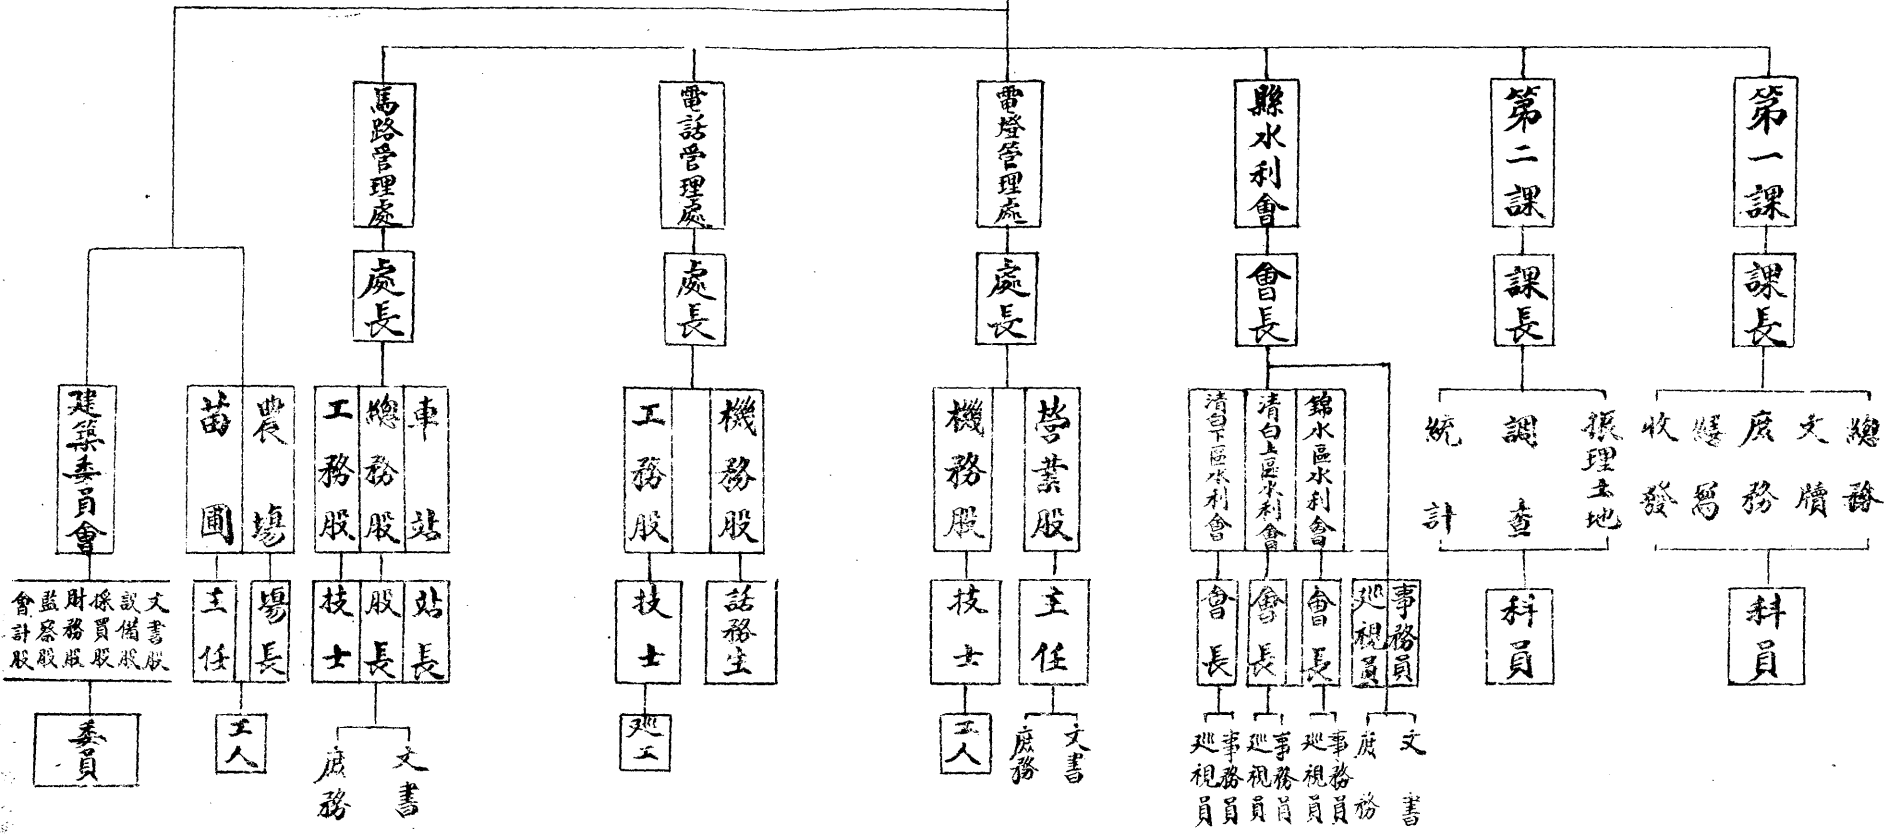 第一課
課長
總務
文牘
庶務
繕寫
收發
科員
第二課
課長
振理土地
調查
統計
科員
縣水利會
會長
錦水區水利會
清白上區水利會
清白下區水利會
事務員
巡視員
會長
會長
會長
文書
庶務
事務員
巡視員
事務員
巡視員
事務員
巡視員
電燈管理處
處長
營業股
機務股
主任
技士
文書
庶務
工人
電話管理處
處長
機務股
工務股
話務生
技士
巡工
馬路管理處
處長
車站
總務股
工務股
站長
股長
技士
文書
庶務
農場
苗圃
場長
主任
工人
建築委員會
文書股
設備股
採買股
財務股
監察股
會計股
委員